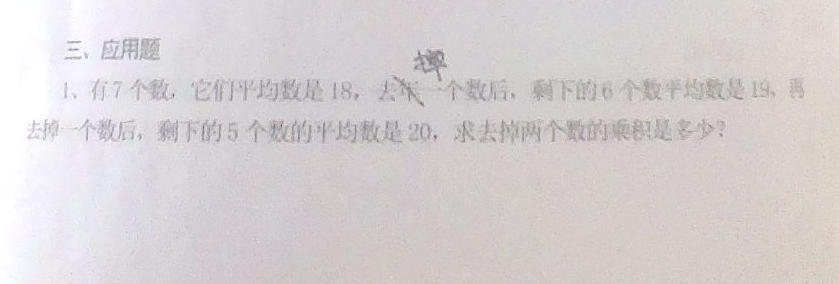 三、应用题
掉
1、有7个数，它们平均数是18，去 一个数后，剩下的6个数平均数是19，再
去掉一个数后，剩下的5个数的平均数是20，求去掉两个数的乘积是多少？